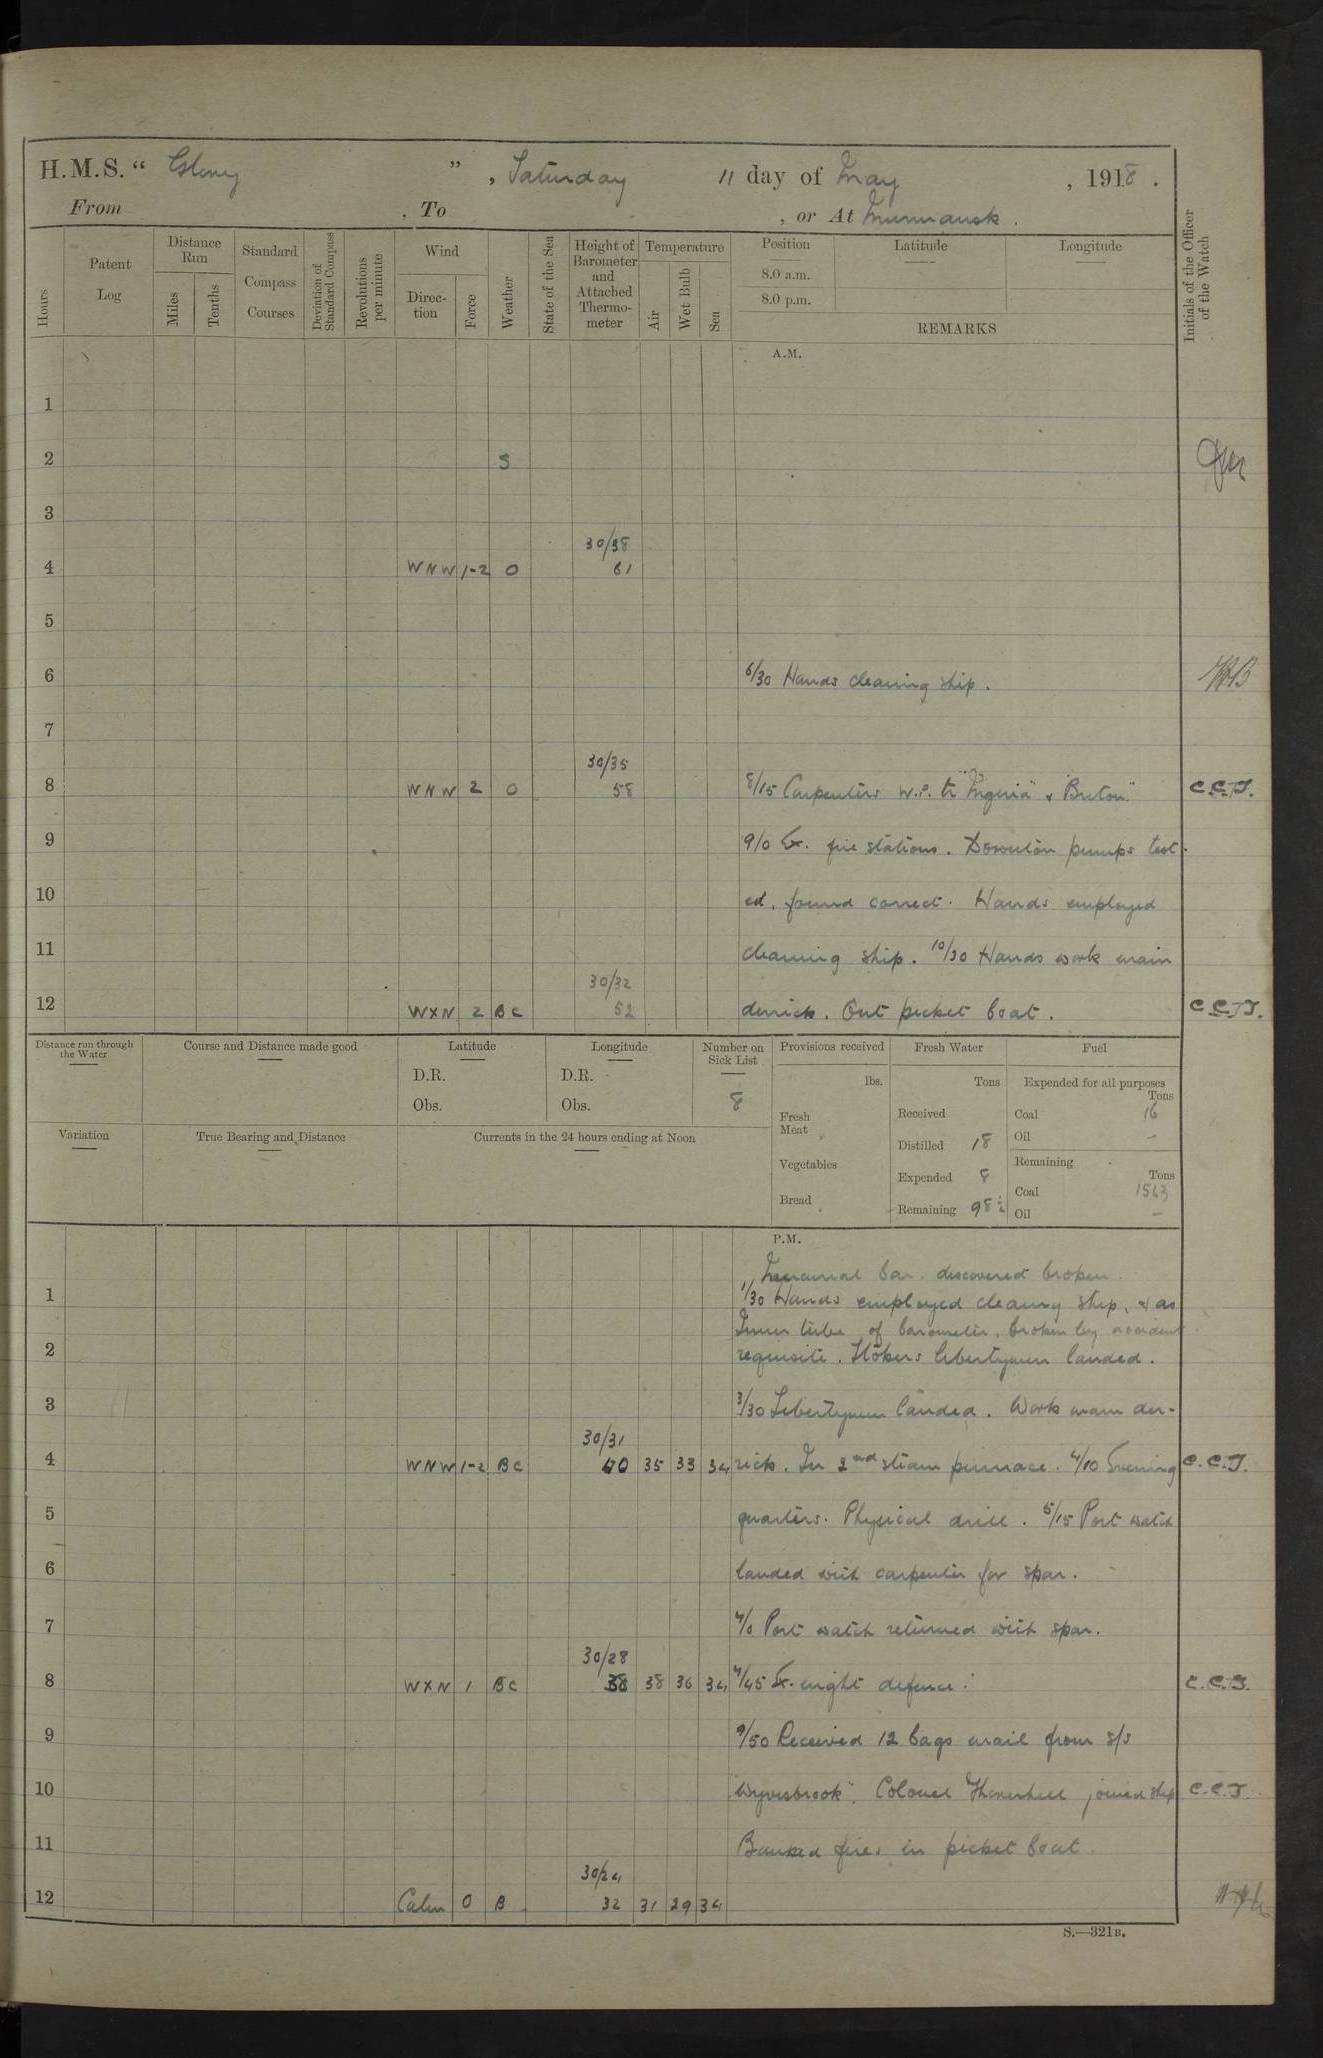 H.M.S. " Glory " , Saturday 11 day of May , 1918 .
From , To , or At Murmansk .
Hours
Patent Log
Distance Run
Miles
Tenths
Standard Compass Courses
Deviation of Standard Compass
Revolutions per minute
Wind
Direc-tion
Force
Weather
State of the Sea
Height of Barometer and Attached Thermo-meter
Temperature
Air
Wet Bulb
Sea
Position
8.0 a.m.
8.0 p.m.
Latitude
Longitude
REMARKS
Initials of the Officer of the Watch
A.M.
1
2 S
3
30/38
4 WNW 1-2 O 61
5
6 6/30 Hands cleaning ship.
7
30/35
8 WNW 2 O 58 8/15 Carpenters W.P. to "Nigeria" & "Briton" C.C.T.
9 9/0 Ex. fire stations. Downton pumps test-
10 ed, found correct. Hands employed
11 cleaning ship. 10/30 Hands work main
30/32
12 WXN 2 BC 52 derrick. Out picket boat. C.C.T.
Distance run through the Water
Course and Distance made good
Latitude
D.R.
Obs.
Longitude
D.R.
Obs.
Number on Sick List
8
Provisions received
lbs.
Fresh Meat
Vegetables
Bread
Fresh Water
Tons
Received
Distilled 18
Expended 8
Remaining 98½
Fuel
Expended for all purposes
Tons
Coal 16
Oil –
Remaining
Tons
Coal 1563
Oil –
Variation
True Bearing and Distance
Currents in the 24 hours ending at Noon
P.M.
Mercurial bar. discovered broken
1 1/30 Hands employed cleaning ship, & as
Inner tube of barometer, broken by accident
2 requisite. Stokers libertymen landed.
3 3/30 Libertymen landed. Work main der-
30/31
4 WNW 1-2 BC 40 35 33 34 rick. In 2nd steam pinnace. 4/10 Evening C.C.T.
5 quarters. Physical drill. 5/15 Port watch
6 landed with carpenter for spar.
7 7/0 Port watch returned with spar.
30/28
8 WXN 1 BC 38 38 36 34 7/45 Ex. night defence. C.C.T.
9 9/50 Received 12 bags mail from s/s
10 "Wyvisbrook". Colonel joined ship C.C.T.
11 Banked fires in picket boat.
30/24
12 Calm 0 B 32 31 29 34
S.—321B.